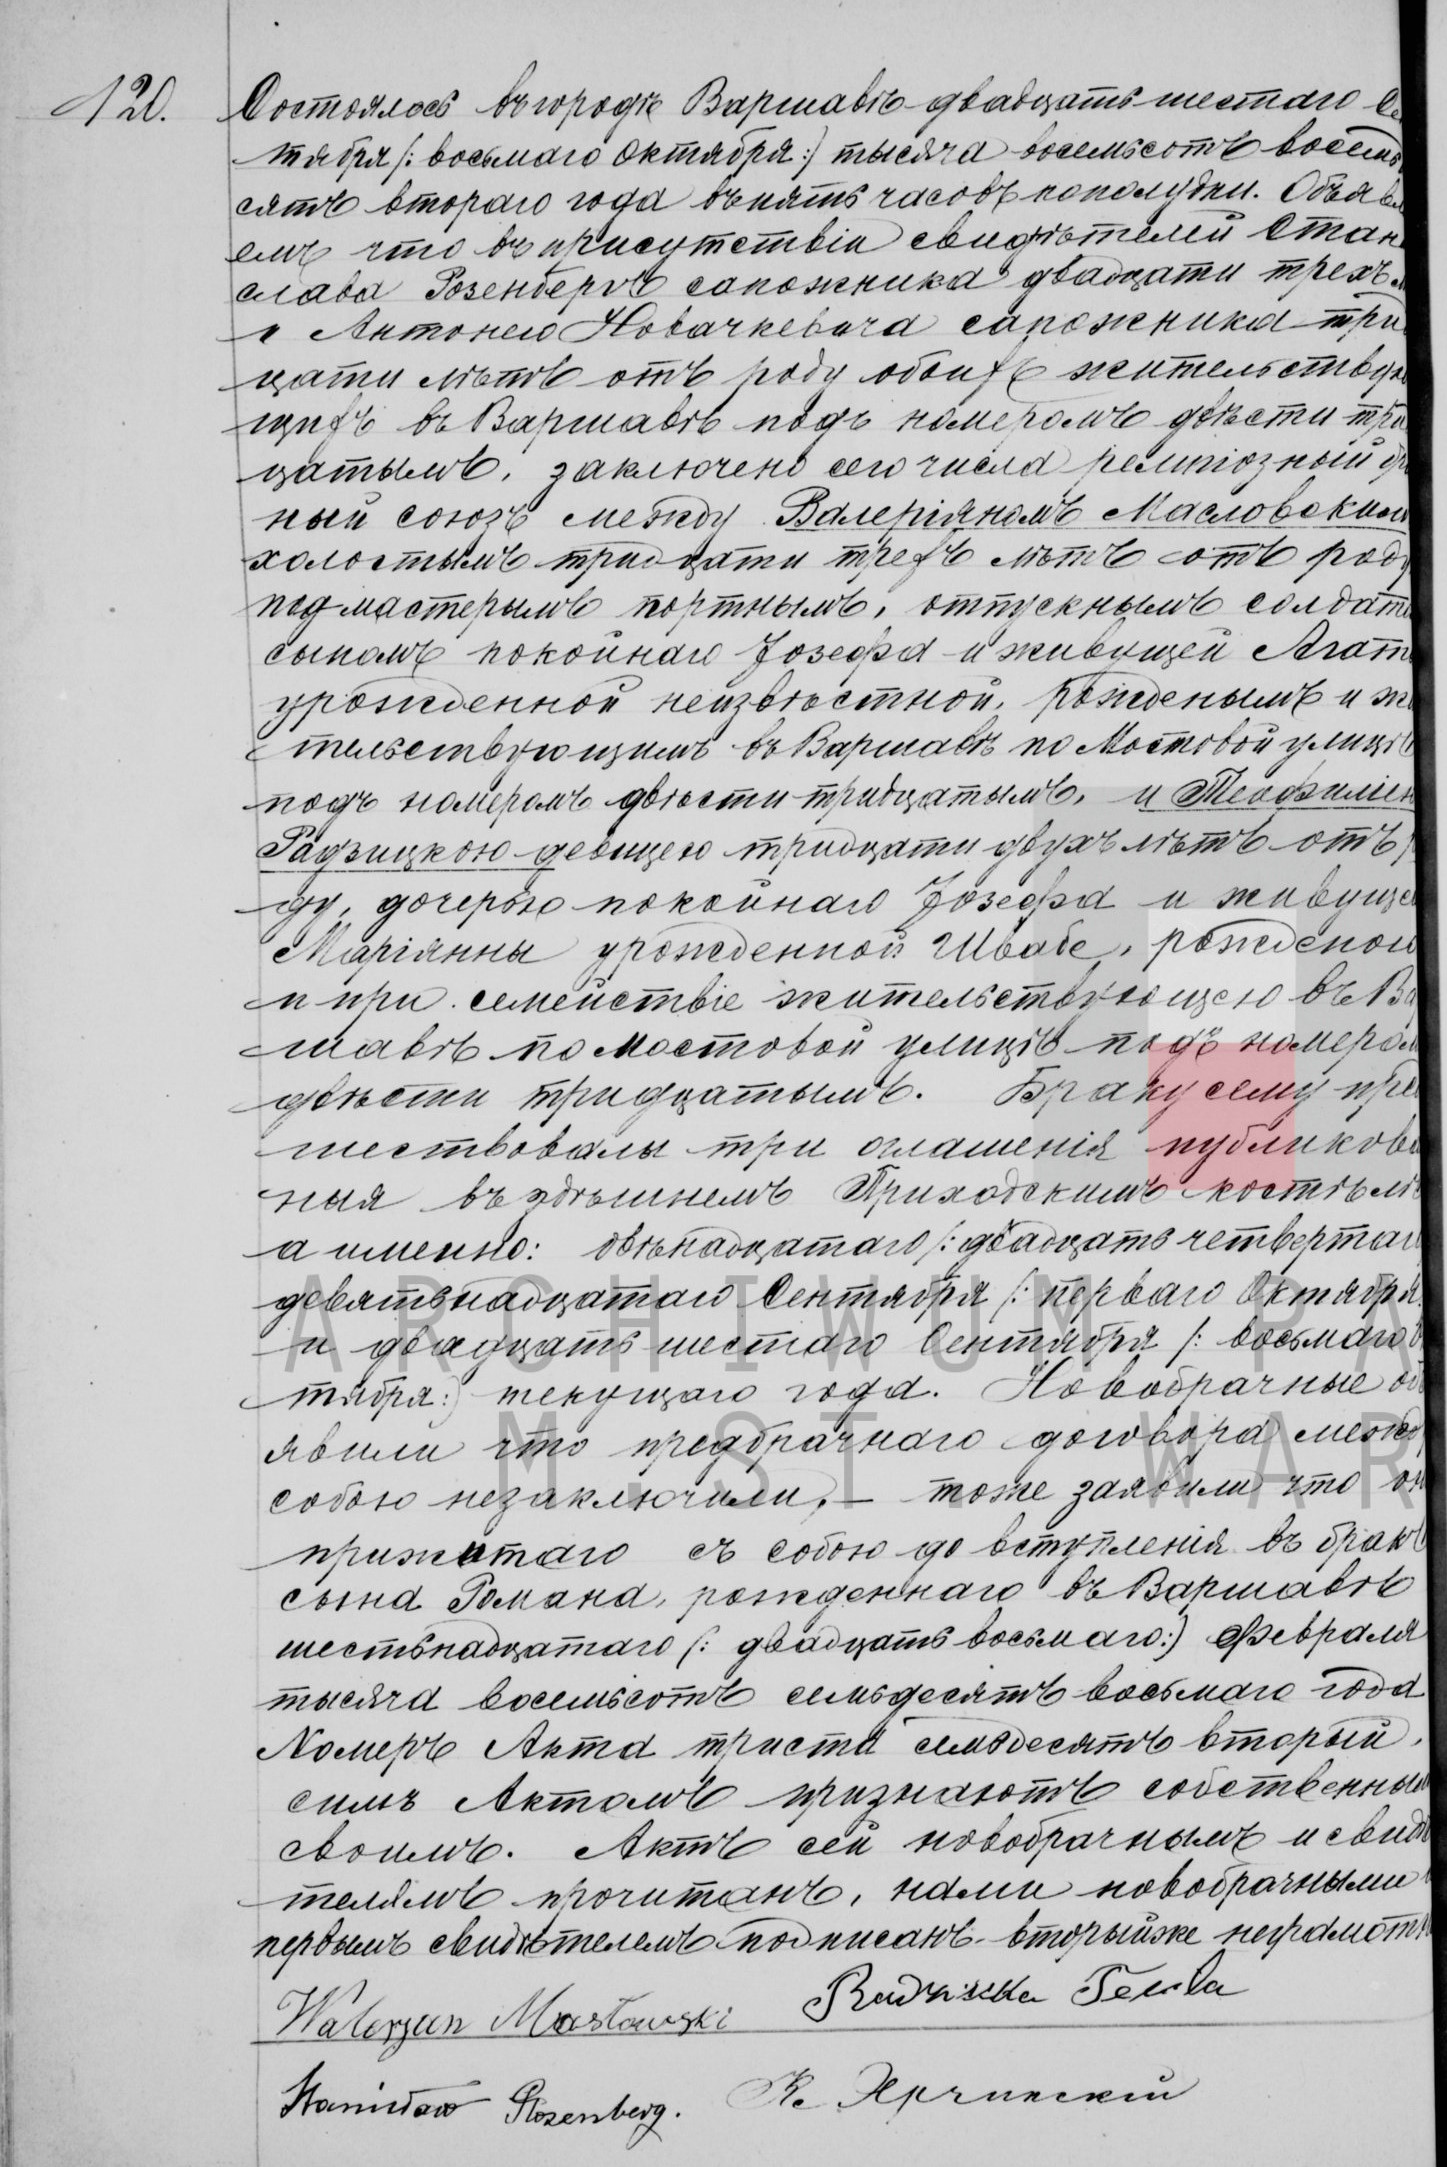 120.
Состоялось въ городѣ Варшавѣ двадцать шестаго Се
тября /: восьмаго Октября :/ тысяча восемьсотъ восемь
сятъ втораго года въ пять часовъ пополудни. Объявля
емъ что въ присутствіи свидѣтелей Стани
слава Розенбергъ сапожника двадцати трехъ
и Антонего Новачкевича сапожника три
цати лѣтъ отъ роду обоихъ жительствую
щихъ въ Варшавѣ подъ номеромъ двѣсти три
цатымъ, заключено сего числа религіозный бра
ный союзъ между Валеріяномъ Масловскимъ
холостымъ тридцати трехъ лѣтъ отъ роду
подмастерымъ портнымъ, отпускнымъ солдатъ
сыномъ покойнаго Іозефа и живущей Агаты
урожденной неизвѣстной, рожденымъ и жи
тельствующимъ въ Варшавѣ по Мостовой улицѣ
подъ номеромъ двѣсти тридцатымъ, и Теофилею
Радзицкою девицею тридцати двухъ лѣтъ отъ р
ду, дочерью покойнаго Іозефа и живущей
Маріянны урожденной Швабе, рожденою
и при семействіе жительствующею въ Ва
шавѣ по Мостовой улицѣ подъ номером
двѣсти тридцатымъ. Браку сему пред
шествовалы три оглашенія публикова
ныя въ здѣшнемъ Приходскимъ костѣлѣ
а именно: двѣнадцатаго /: двадцать четвертаго
девятьнадцатаго Сентября /: перваго Октября
и двадцать шестаго Сентября /: восьмаго О
тября :/ текущаго года. Новобрачные об
явили что предбрачнаго договора между
собою незаключили, – тоже заявили что он
прижитаго съ собою до вступленія въ бракъ
сына Романа, рожденнаго въ Варшавѣ
шестьнадцатаго /: двадцать восьмаго :/ Февраля
тысяча восемьсотъ семьдесятъ восьмаго года
Номеръ Акта триста семьдесятъ вторый,
симъ Актомъ признаютъ собственным
своимъ. Актъ сей новобрачнымъ и свидѣ
телямъ прочитанъ, нами новобрачными
первымъ свидѣтелемъ подписанъ вторыйже неграмотн
Waleryan Masłowski Radzicka Teofila
Stanisław Rosenberg. К.
ARCHIWUM PA
M. ST. WAR